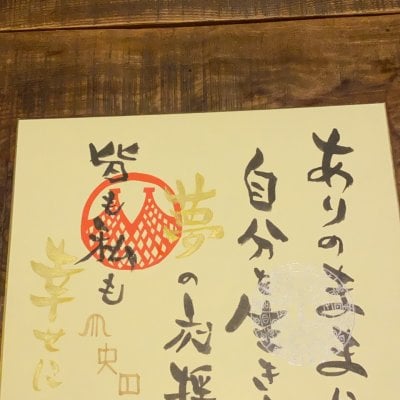 ありのままに
自分を生き
夢の応援
皆も私も
幸せに